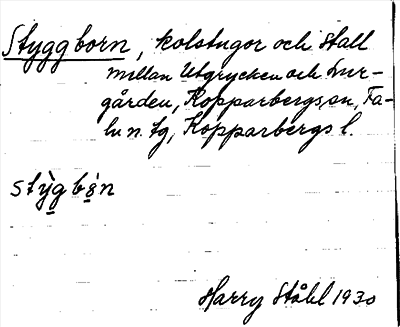 Styggborn, kolstugor och stall
mellan Utgrycken och Lur-
gården, Kopparbergs sn, Fa-
lu n. tg, Kopparbergs l.
stỳg bö̀n
Harry Ståhl 1930